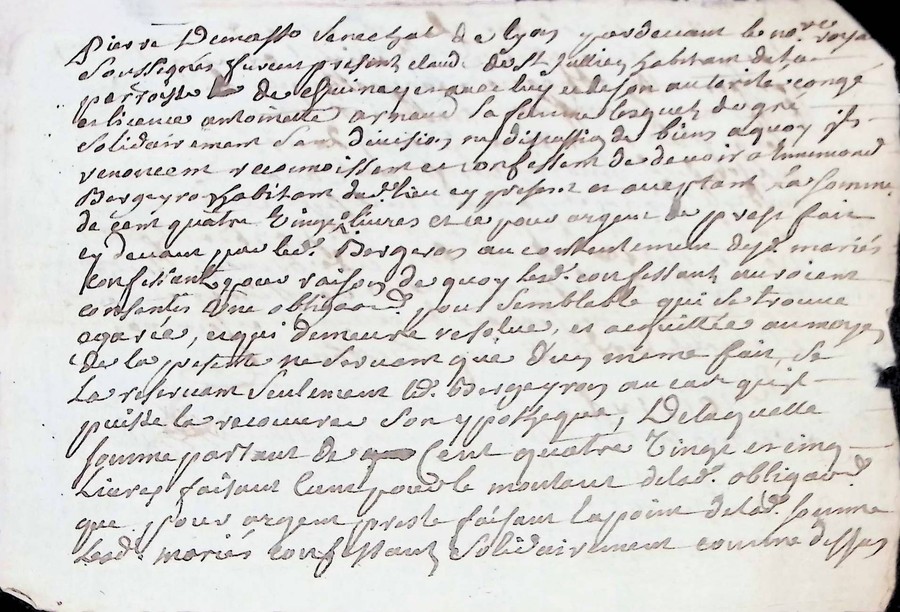 Pierre Demasso senechal de lyon pardevant le no.re royal
Soussignés furent présent claude de St Jullien habitant de la
parroisse de avec luy et de son autorite congé
et licence antoinette arnaud sa femme lesquels de gré
solidairement sans division ny discussion de biens a quoy ils
renoncent reconnoissent et confessent de devoir a Ennemond
Bergeyron habitant dud. lieu cy present et acceptant la somme
de cent quatre vingt livres et ce pour argent de prest fait
cy devant par led. Bergeron au contentement desd. mariés
confessants pour raison de quoy lesd. confessants auroient
consentis une obligaon. pour semblable qui se trouve
egarée, et qui demeure resolue, et acquittée au moyen
de la presente ne servant que d'un même fait, se
la reservant seulement led. Bergeyron au cas qu'il
puisse la recouvrer son ypotheque, De laquelle
somme partant de Cent quatre vingt et cinq
Livres faisant l'une pour le montant de lad. obligaon.
que pour argent presté faisant lapoint de lad. somme
Lesd. mariés confessants solidairement comme dessus